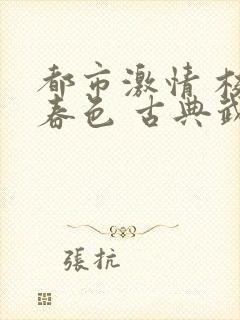 都市激情 校
春色 古典武
張抗